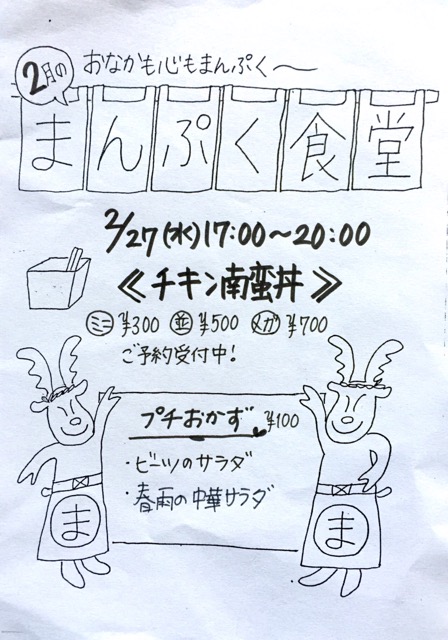 2月の
おなかも心もまんぷく〜
まんぷく食堂
2/27(水)17:00〜20:00
≪チキン南蛮丼≫
ミニ ¥300 並 ¥500 メガ ¥700
ご予約受付中!
プチおかず ¥100
・ビーツのサラダ
・春雨の中華サラダ
ま
ま